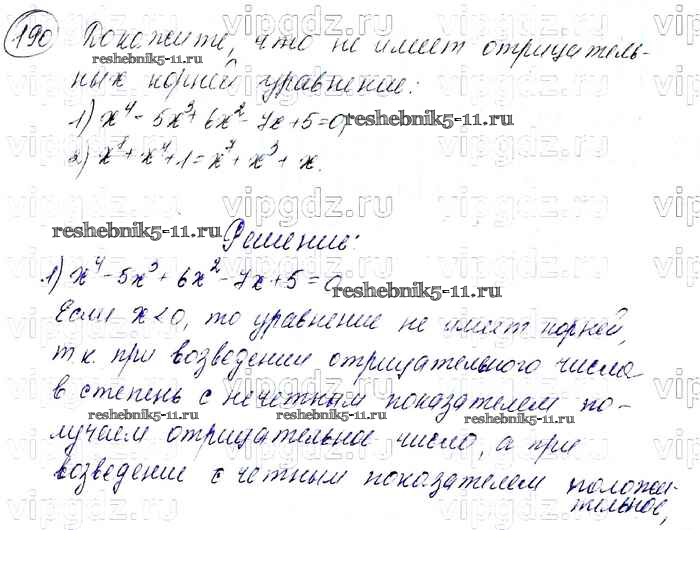 190 Докажите, что не имеет отрицатель-
ных корней уравнение:
1) x⁴ - 5x³ + 6x² - 7x + 5 = 0;
2) x⁸ + x⁴ + 1 = x⁷ + x³ + x.
Решение:
1) x⁴ - 5x³ + 6x² - 7x + 5 = 0
Если x < 0, то уравнение не имеет корней,
т.к. при возведении отрицательного числа
в степень с нечетным показателем по-
лучаем отрицательное число, а при
возведение с четным показателем положи-
тельное,
vipgdz.ru
reshebnik5-11.ru